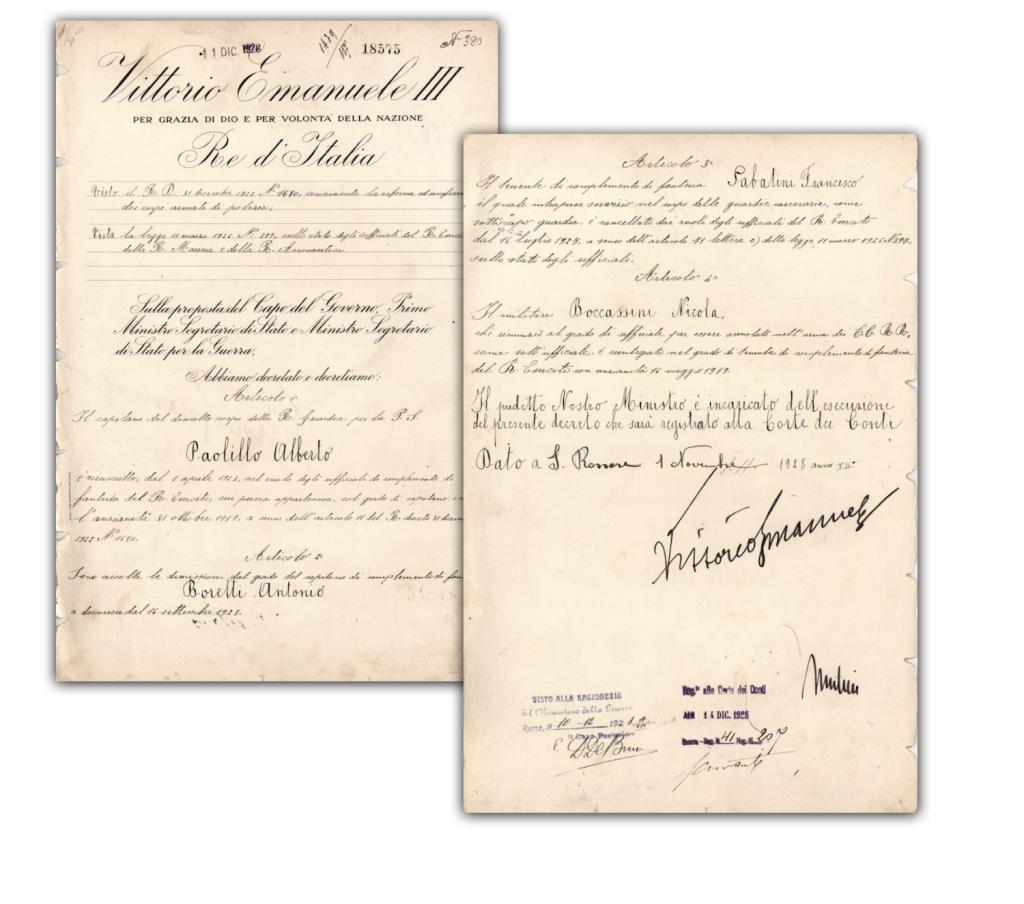 11 DIC. 1928
18575
N 380
Vittorio Emanuele III
PER GRAZIA DI DIO E PER VOLONTA' DELLA NAZIONE
Re d'Italia
Visto il R. D. 31 dicembre 1922 N° 1680, concernente la riforma
dei corpi armati di polizia;
Vista la legge 11 marzo 1926 N° 397, sullo stato degli ufficiali del R. Eserci
della R. Marina e della R. Aeronautica.
Sulla proposta del Capo del Governo, Primo
Ministro Segretario di Stato e Ministro Segretario
di Stato per la Guerra;
Abbiamo decretato e decretiamo:
Articolo
Il capitano del disciolto corpo della R. Guardia per la P. S.
Paolillo Alberto
è reinscritto, dal 1 aprile 1923, nel ruolo degli ufficiali di complemento di
fanteria del R. Esercito, cui prima apparteneva, col grado di capitano,
l'anzianità 31 ottobre a senso dell'articolo 11 del R. decreto 31 dicem
1922 N° 1680.
Articolo 2°
Sono accolte le dimissioni dal grado del capitano di complemento di fan
Boretti Antonio
a decorrere dal 16 settembre 1928.
Articolo 3°
Il tenente di complemento di fanteria Sabatini Francesco
il quale intraprese servizio nel corpo delle guardie carcerarie, come
sottocapo guardia, è cancellato dai ruoli degli ufficiali del R. Esercito
dal 16 luglio 1927, a senso dell'articolo lettera c) della legge 11 marzo 1926 N. 397
sullo stato degli ufficiali.
Articolo 4°
Il militare Boccassini Nicola,
che rinunziò al grado di ufficiale per essere arruolato nell'arma dei CC. RR.
come sott'ufficiale, è reintegrato nel grado di tenente di complemento di fanteria
del R. Esercito con anzianità 16 maggio 1919.
Il predetto Nostro Ministro è incaricato dell'esecuzione
del presente decreto che sarà registrato alla Corte dei Conti
Dato a S. Rossore 1 Novembre 1928 anno
Vittorio Emanuele
VISTO ALLA RAGIONERIA
del Ministero della Guerra
Roma, li 10-12 192
Reg.to alla Corte dei Conti
Addì 14 DIC. 1928
Guerra - Reg. N. 41 Fog. N. 207